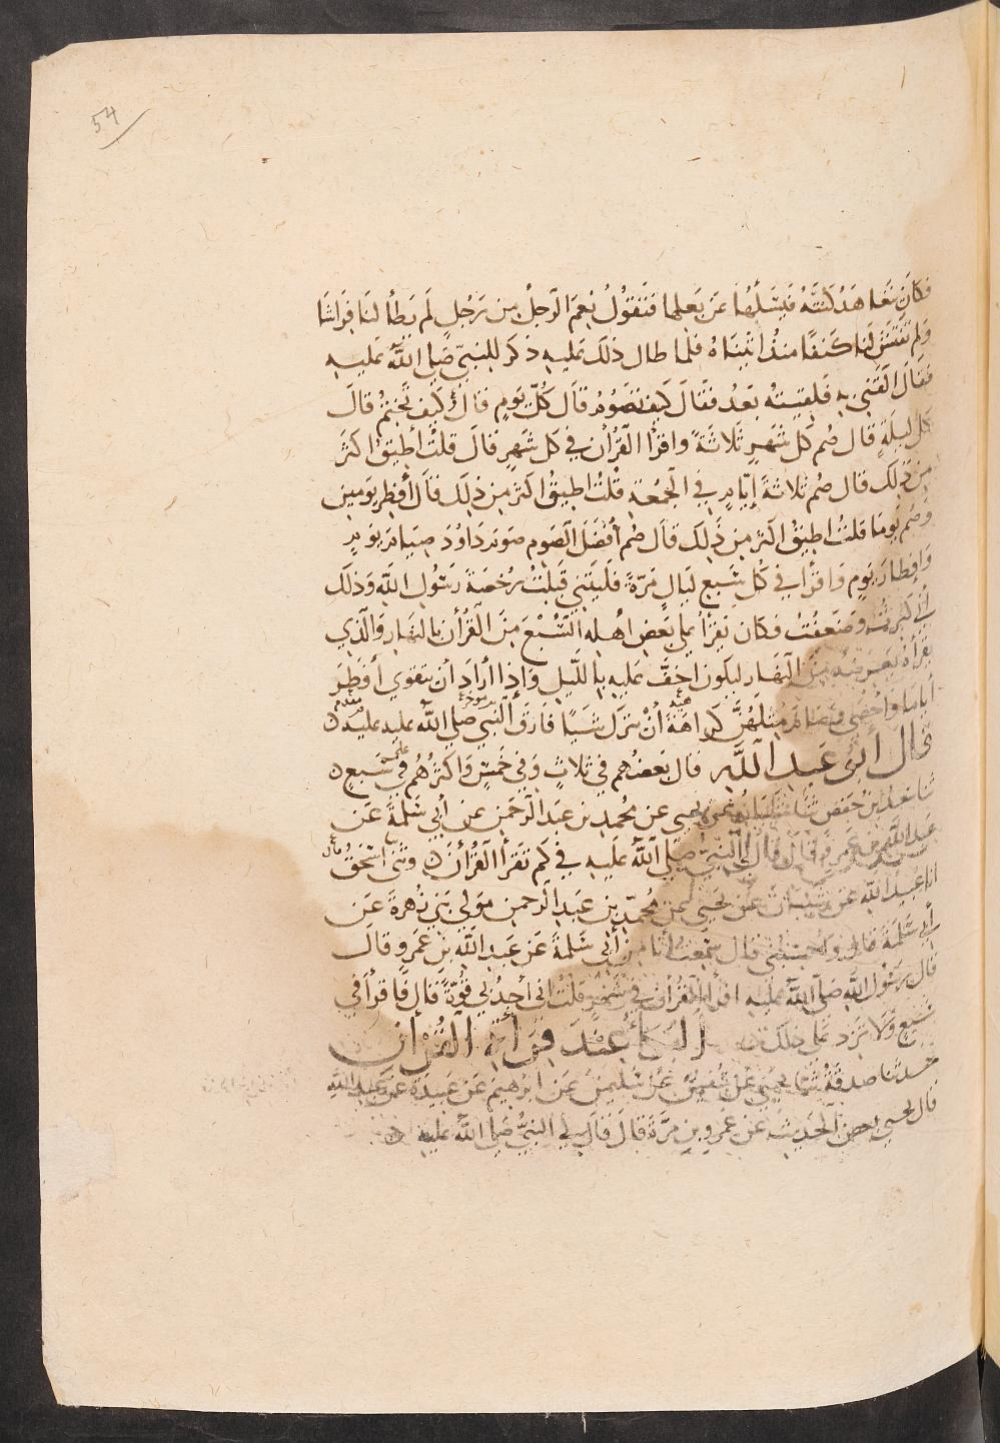 54
فكان يتعاهد كنته فيسئلها عن بعلها فتقول نعم الرجل من رجل لم يطأ لنا فراشا
ولم يفتش لنا كنفا منذ اتيناه فلما طال ذلك عليه ذكر للنبي صلى الله عليه
فقال القني به فلقيته بعد فقال كيف تصوم قال كل يوم قال كيف تختم قال
كل ليلة قال صم كل شهر ثلاثة واقرأ القرآن في كل شهر قال قلت أطيق اكثر
من ذلك قال صم ثلاثة ايام في الجمعة قلت اطيق اكثر من ذلك قال أفطر يومين
وصم يوما قلت اطيق اكثر من ذلك قال صم أفضل الصوم صوم داود صيام يوم
وإفطار يوم واقرأ في كل سبع ليال مرة فليتني قبلت رخصة رسول الله وذلك
أني كبرت وضعفت فكان يقرأ على بعض اهله السبع من القرآن بالنهار والذي
يقرأه يعرضه من النهار ليكون اخف عليه بالليل وإذا أراد أن يتقوى أفطر
أياما وأحصى وصام مثلهن كراهية أن يترك شيئا فارق النبي صلى الله عليه عليه
قال أبو عبد الله قال بعضهم في ثلاث وفي خمس واكثرهم على سبع
ثنا سعد بن حفص ثنا شيبان عن يحيى عن محمد بن عبد الرحمن عن أبي سلمة عن
عبد الله بن عمرو قال قال لي النبي صلى الله عليه في كم تقرأ القرآن وثنى اسحق قال
انا عبيد الله عن شيبان عن يحيى عن محمد بن عبد الرحمن مولى بني زهرة عن
أبي سلمة قال واحسبني قال سمعت أنا من أبي سلمة عن عبد الله بن عمرو قال
قال رسول الله صلى الله عليه اقرأ القرآن في شهر قلت اني أجد لي قوة قال فاقرأ في
سبع ولا تزد على ذلك البكاء عند قراءة القرآن
حدثنا صدقة ثنا يحيى عن سفين عن سليمن عن ابرهيم عن عبيدة عن عبد الله
قال يحيى بعض الحديث عن عمرو بن مرة قال قال لي النبي صلى الله عليه